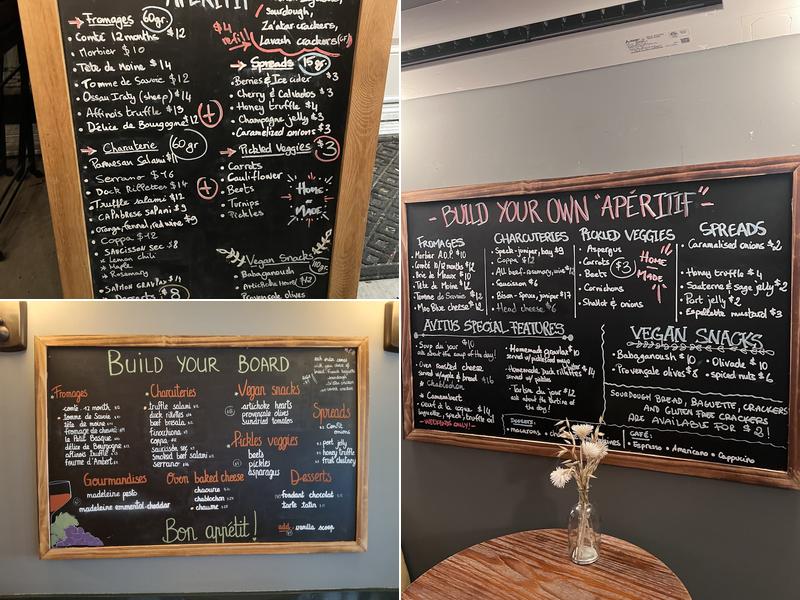 APÉRITIF
Fromages 60gr.
Comté 12 months $12
Morbier $10
Tête de Moine $14
Tomme de Savoie $12
Ossau Iraty (sheep) $14
Affinois truffle $13
Délice de Bourgogne $12
Charcuterie 60gr
Parmesan Salami $11
Serrano $16
Duck Rillettes $14
Truffle salami $12
CALABRESE SALAMI $9
Orange, fennel, red wine $9
Coppa $12
SAUCISSON SEC $8
Lemon chili
Maple
Rosemary
SALMON GRAVLAX $14
Desserts $8
sourdough,
Za'atar crackers,
$4 refill
Lavash crackers (GF)
Spreads 15gr.
Berries & Ice cider $3
Cherry & Calvados $3
Honey truffle $4
Champagne jelly $3
Caramelized onions $3
Pickled Veggies $3
Carrots
Cauliflower
Beets
Turnips
Pickles
HOME
MADE
Vegan Snacks
Babaganoush
Artichoke Hearts $12
Provençale olives
BUILD YOUR BOARD
Fromages
comté - 12 month
tomme de Savoie
tête de moine
fromage de chèvre
le Petit Basque
délice de Bourgogne
affinois truffle
fourme d'Ambert
Charcuteries
truffle salami
duck rillettes
beef bresaola
finocchiona
coppa
saucisson sec
smoked beef salami
serrano
Vegan snacks
artichoke hearts
provençale olives
sundried tomatoes
Pickles veggies
beets
pickles
asparagus
Spreads
confit onions
port jelly
honey truffle
fruit chutney
Gourmandises
madeleine pesto
madeleine emmental-cheddar
Oven baked cheese
chaource
chablochon
chaume
Desserts
fondant chocolat
tarte tatin
add vanilla scoop
Bon appétit!
- BUILD YOUR OWN "APÉRITIF" -
FROMAGES
Morbier A.O.P. $10
Comté 10/12 months $12
Brie de Meaux $10
Tête de Moine $12
Tomme de Savoie $12
Moo Blue cheese $12
CHARCUTERIES
Speck - juniper, bay $9
Coppa $12
Saucisson $6
Bison - Spruce, juniper $17
Head cheese $6
PICKLED VEGGIES
Asperges
Carrots $3
Beets
Cornichons
Shallot & onions
HOME
MADE
SPREADS
Caramelised onions $2
Honey truffle $4
Sauterne & sage jelly $2
Port jelly $2
Espelette mustard $3
AVITUS SPECIAL FEATURES
Soup du jour $10
ask about the soup of the day!
Oven roasted cheese
served w/ apple & bread $16
Chablochon
Camembert
Oeuf à la coque $14
baguette, speck, truffle oil
- WEEKENDS ONLY! -
Homemade gravlax $10
served w/ pickled mayo
Homemade Duck rillettes $14
served w/ pickles
Tartine du jour $12
ask about the tartine of
the day!
DESSERTS:
macarons
VEGAN SNACKS
Babaganoush $10
Olivade $10
Provençale olives $8
spiced nuts $6
SOURDOUGH BREAD, BAGUETTE, CRACKERS
AND GLUTEN FREE CRACKERS
ARE AVAILABLE FOR $3!
CAFÉ:
Espresso • Americano • Cappuccino